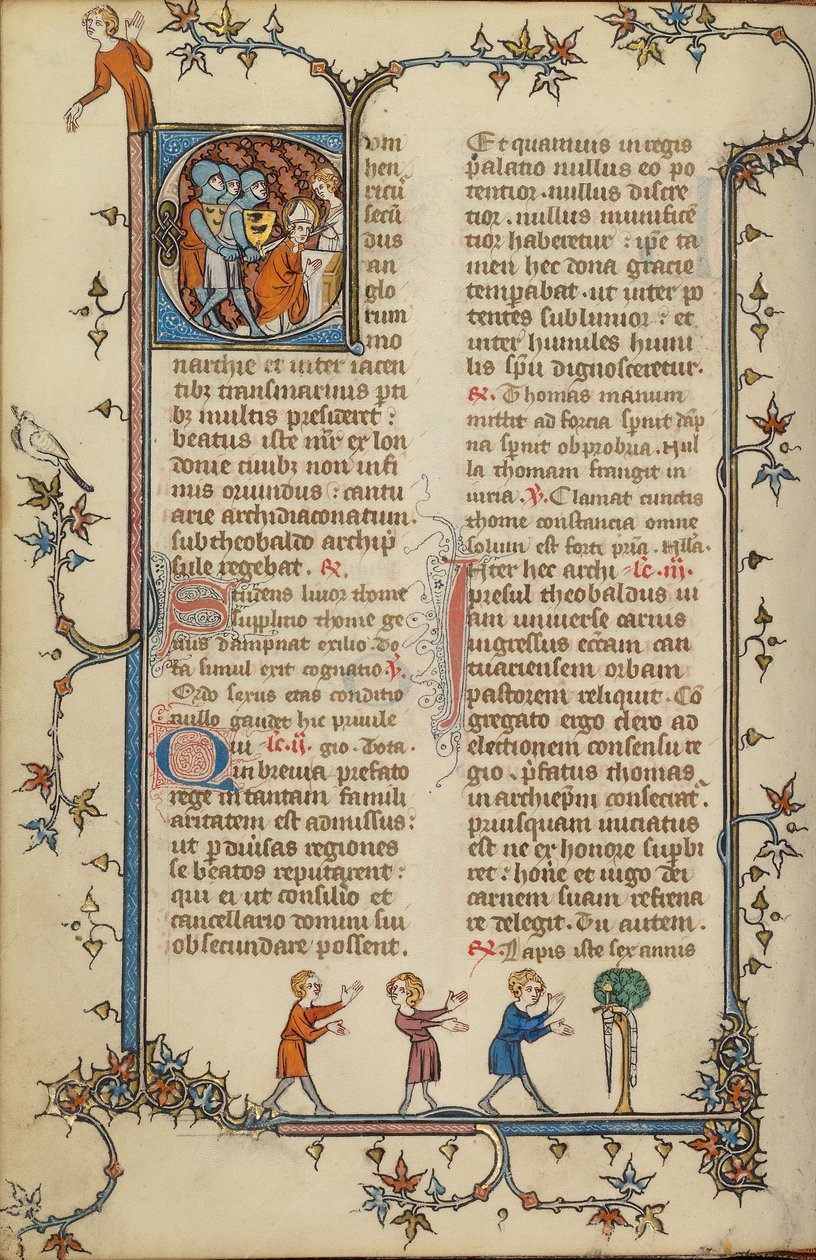 um
hen
ricus
secū
dus
an
glo
rum
mo
narchie et inter iacen
tibz transmarinis pti
bz multis presideret :
beatus iste nr̄ ex lon
donie ciuibz non infi
mis oriundus : cantu
arie archidiaconatum.
sub theobaldo archip̄
sule regebat. R.
Studens liuor thome
supplicio thome ge
nus dampnat exilio. To
ta simul exit cognatio. V.
Ordo sexus etas conditio
nullo gaudet hic priuile
Qui lc. ii. gio. Tota.
in breuia prefato
rege in tantam famili
aritatem est admissus :
ut p diuisas regiones
se beatos reputarent :
qui ei ut consilio et
cancellario domini sui
obsecundare possent.
Et quamuis in regis
palatio nullus eo po
tentior. nullus discre
tior. nullus munificē
tior haberetur : ip̄e ta
men hec dona gracie
temperabat. ut inter po
tentes sublimior : et
inter humiles humi
lis spū dignosceretur.
R. Thomas manum
mittit ad forcia spernit dāp
na spernit obprobria. Nul
la thomam frangit in
iuria. V. Clamat cunctis
thome constancia omne
solum est forte p̄ria. Nlla.
Inter hec archi lc. iii.
presul theobaldus ui
am uniuerse carnis
ingressus eccāam can
tuariensem orbam
pastorem reliquit. Cō
gregato ergo clero ad
electionem consensu re
gio. p̄fatus thomas
in archiep̄m consecrat᷑.
priusquam iniciatus
est ne ex honore superbi
ret : hon̄e et iugo dei
carnem suam refrena
re delegit. Tu autem.
R. Lapis iste sex annis